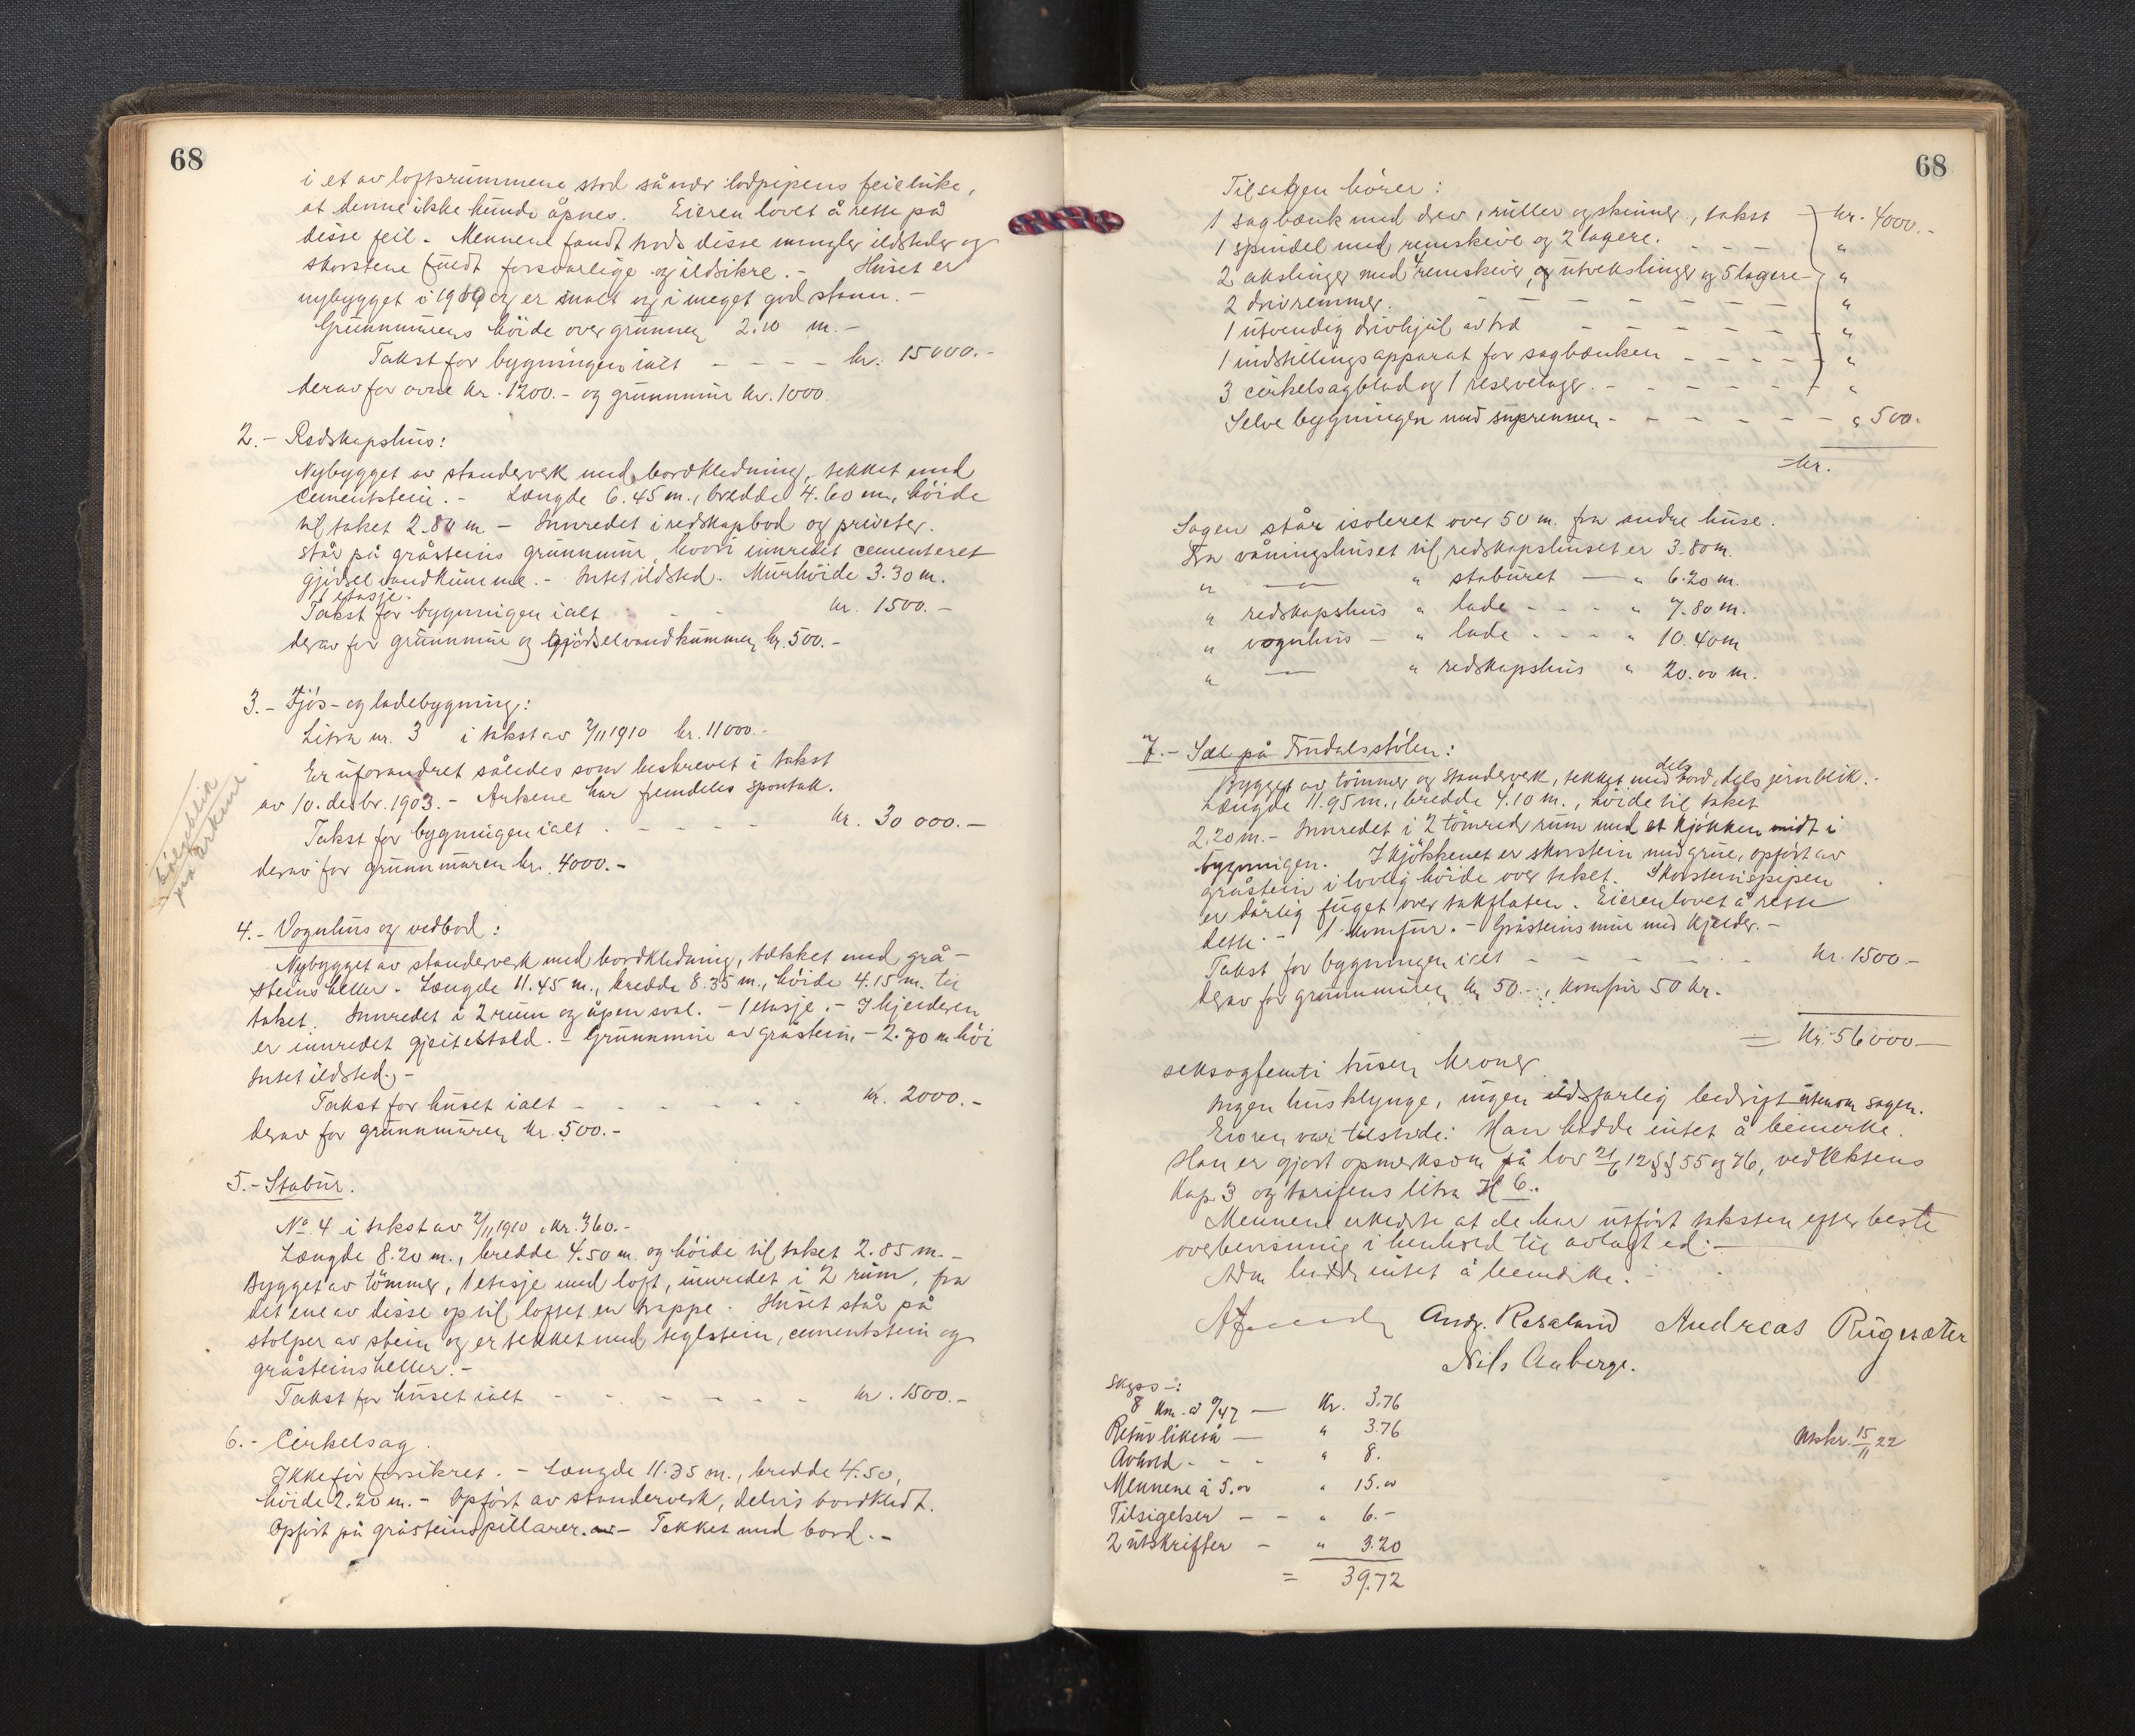 68
i et av loftsrummene stod så nær lodpipens feieluke,
at denne ikke kunde åpnes. Eieren lovet å rette på
disse feil. - Mennene fandt trods disse mangler ildsteder og
skorstene fuldt forsvarlige og ildsikre. - Huset er
nybygget i 1919 og er malt og i meget god stann. -
Grunnmurens höide over grunnen 2.10 m. -
Takst for bygningen ialt - - - - kr. 15000.-
derav for ovne kr. 1200.- og grunnmur kr. 1000.
2.- Redskapshus:
Nybygget av standerverk med bordkledning, tekket med
cementstein. - Længde 6.45 m., bredde 4.60 m., höide
til taket 2.80 m - Innredet i redskapbod og priveter.
står på gråsteins grunnmur, hvori innredet cementeret
gjödselvandkumme. - Intet ildsted. Murhöide 3.30 m.
1 etasje.
Takst for bygningen ialt - - kr. 1500.-
derav for grunnmur og gjödselvandkummen kr. 500.-
3.- Fjös- og ladebygning:
Litra nr. 3 i takst av 2/11 1910 kr. 11000.-
Er uforandret således som beskrevet i takst
av 10. desbr. 1903. - Arkene har fremdeles spontak.
Takst for bygningen ialt - - - - kr. 30 000.-
derav for grunnmuren kr. 4000.-
på arkene
4.- Vognhus og vedbod:
Nybygget av standerverk med bordkledning, tekket med grå-
steinsheller. Længde 11.45 m., bredde 8.35 m., höide 4.15 m. til
taket. Innredet i 2 rum og åpen sval. - 1 etasje. - I kjelderen
er innredet gjeitestald. - Grunnmur av gråstein, - 2.70 m höi
Intet ildsted. -
Takst for huset ialt - - - - - kr. 2000.-
derav for grunnmuren kr. 500.-
5.- Stabur.
No. 4 i takst av 2/11 1910, kr. 360.-
Længde 8.20 m., bredde 4.50 m. og höide til taket 2.85 m. -
Bygget av tömmer, 1 etasje med loft, innredet i 2 rum, fra
det ene av disse op til loftet en trappe. Huset står på
stolper av stein og er tekket med teglstein, cementstein og
gråsteinsheller. -
Takst for huset ialt - - - - - - kr. 1500.-
6.- Cirkelsag.
Ikke för forsikret. - Længde 11.35 m., bredde 4.50,
höide 2.20 m. - Opfört av standerverk, delvis bordkledt.
Opfört på gråsteinspillarer. - Tekket med bord. -
68
Til sagen hörer:
1 sagbænk med drev, ruller og skinner, takst - kr. 4000.-
1 spindel med remskive og 2 lagere. - - - "
2 akslinger med 4 remskiver, og utvekslinger og 5 lagere - "
2 drivremmer. - - - - - - "
1 utvendig drivhjul av træ - - - - - "
1 indstillingsapparat for sagbænken - - - - "
3 cirkelsagblad og 1 reservelager. - - - - - "
Selve bygningen med suprennen - - - - - " 500.
kr.
Sagen står isoleret over 50 m. fra andre huse.
Fra våningshuset til redskapshuset er 3.80 m.
" — " staburet — " 6.20 m.
" redskapshus " lade - - - " 7.80 m.
" vognhus - " lade - - - " 10.40 m
" — " redskapshus " 20.00 m.
7.- Sæl på Trudalsstölen:
Bygget av tömmer og standerverk, tekket med dels bord, dels jernblik. -
Længde 11.95 m., bredde 4.10 m., höide til taket
2.20 m. - Innredet i 2 tömrede rum med et kjökken midt i
bygningen. I kjökkenet er skorstein med grue, opfört av
gråstein i lovlig höide over taket. Skorsteinspipen
er dårlig fuget over takflaten. Eieren lovet å rette
dette. - 1 komfur. - Gråsteinsmur med kjelder. -
Takst for bygningen ialt - - - - - - kr. 1500 -
derav for grunnmuren kr. 50.-, komfur 50 kr.
= kr. 56000 -
seksogfemti tusen kroner
Ingen husklynge, ingen ildsfarlig bedrift utenom sagen.
Eieren var tilstede. Han hadde intet å bemerke.
Han er gjort opmerksom på lov 21/6 12 §§ 55 og 76, vedtektens
kap. 3 og tarifens litra H 6.
Mennene erklærte at de har utfört taksten efter beste
overbevisning i henhold til avlagt ed. -
hadde intet å bemerke.
Andr. Røsaland Andreas Rügsæter
Nils Aaberge.
Skyss -:
8 km. à 0/47 — kr. 3.76
Retur likeså — " 3.76
Avhold - - - " 8.
Mennene à 5.00 " 15.00
Tilsigelser - - " 6.-
2 utskrifter - " 3.20
= 39.72
Utskr. 15/11 22